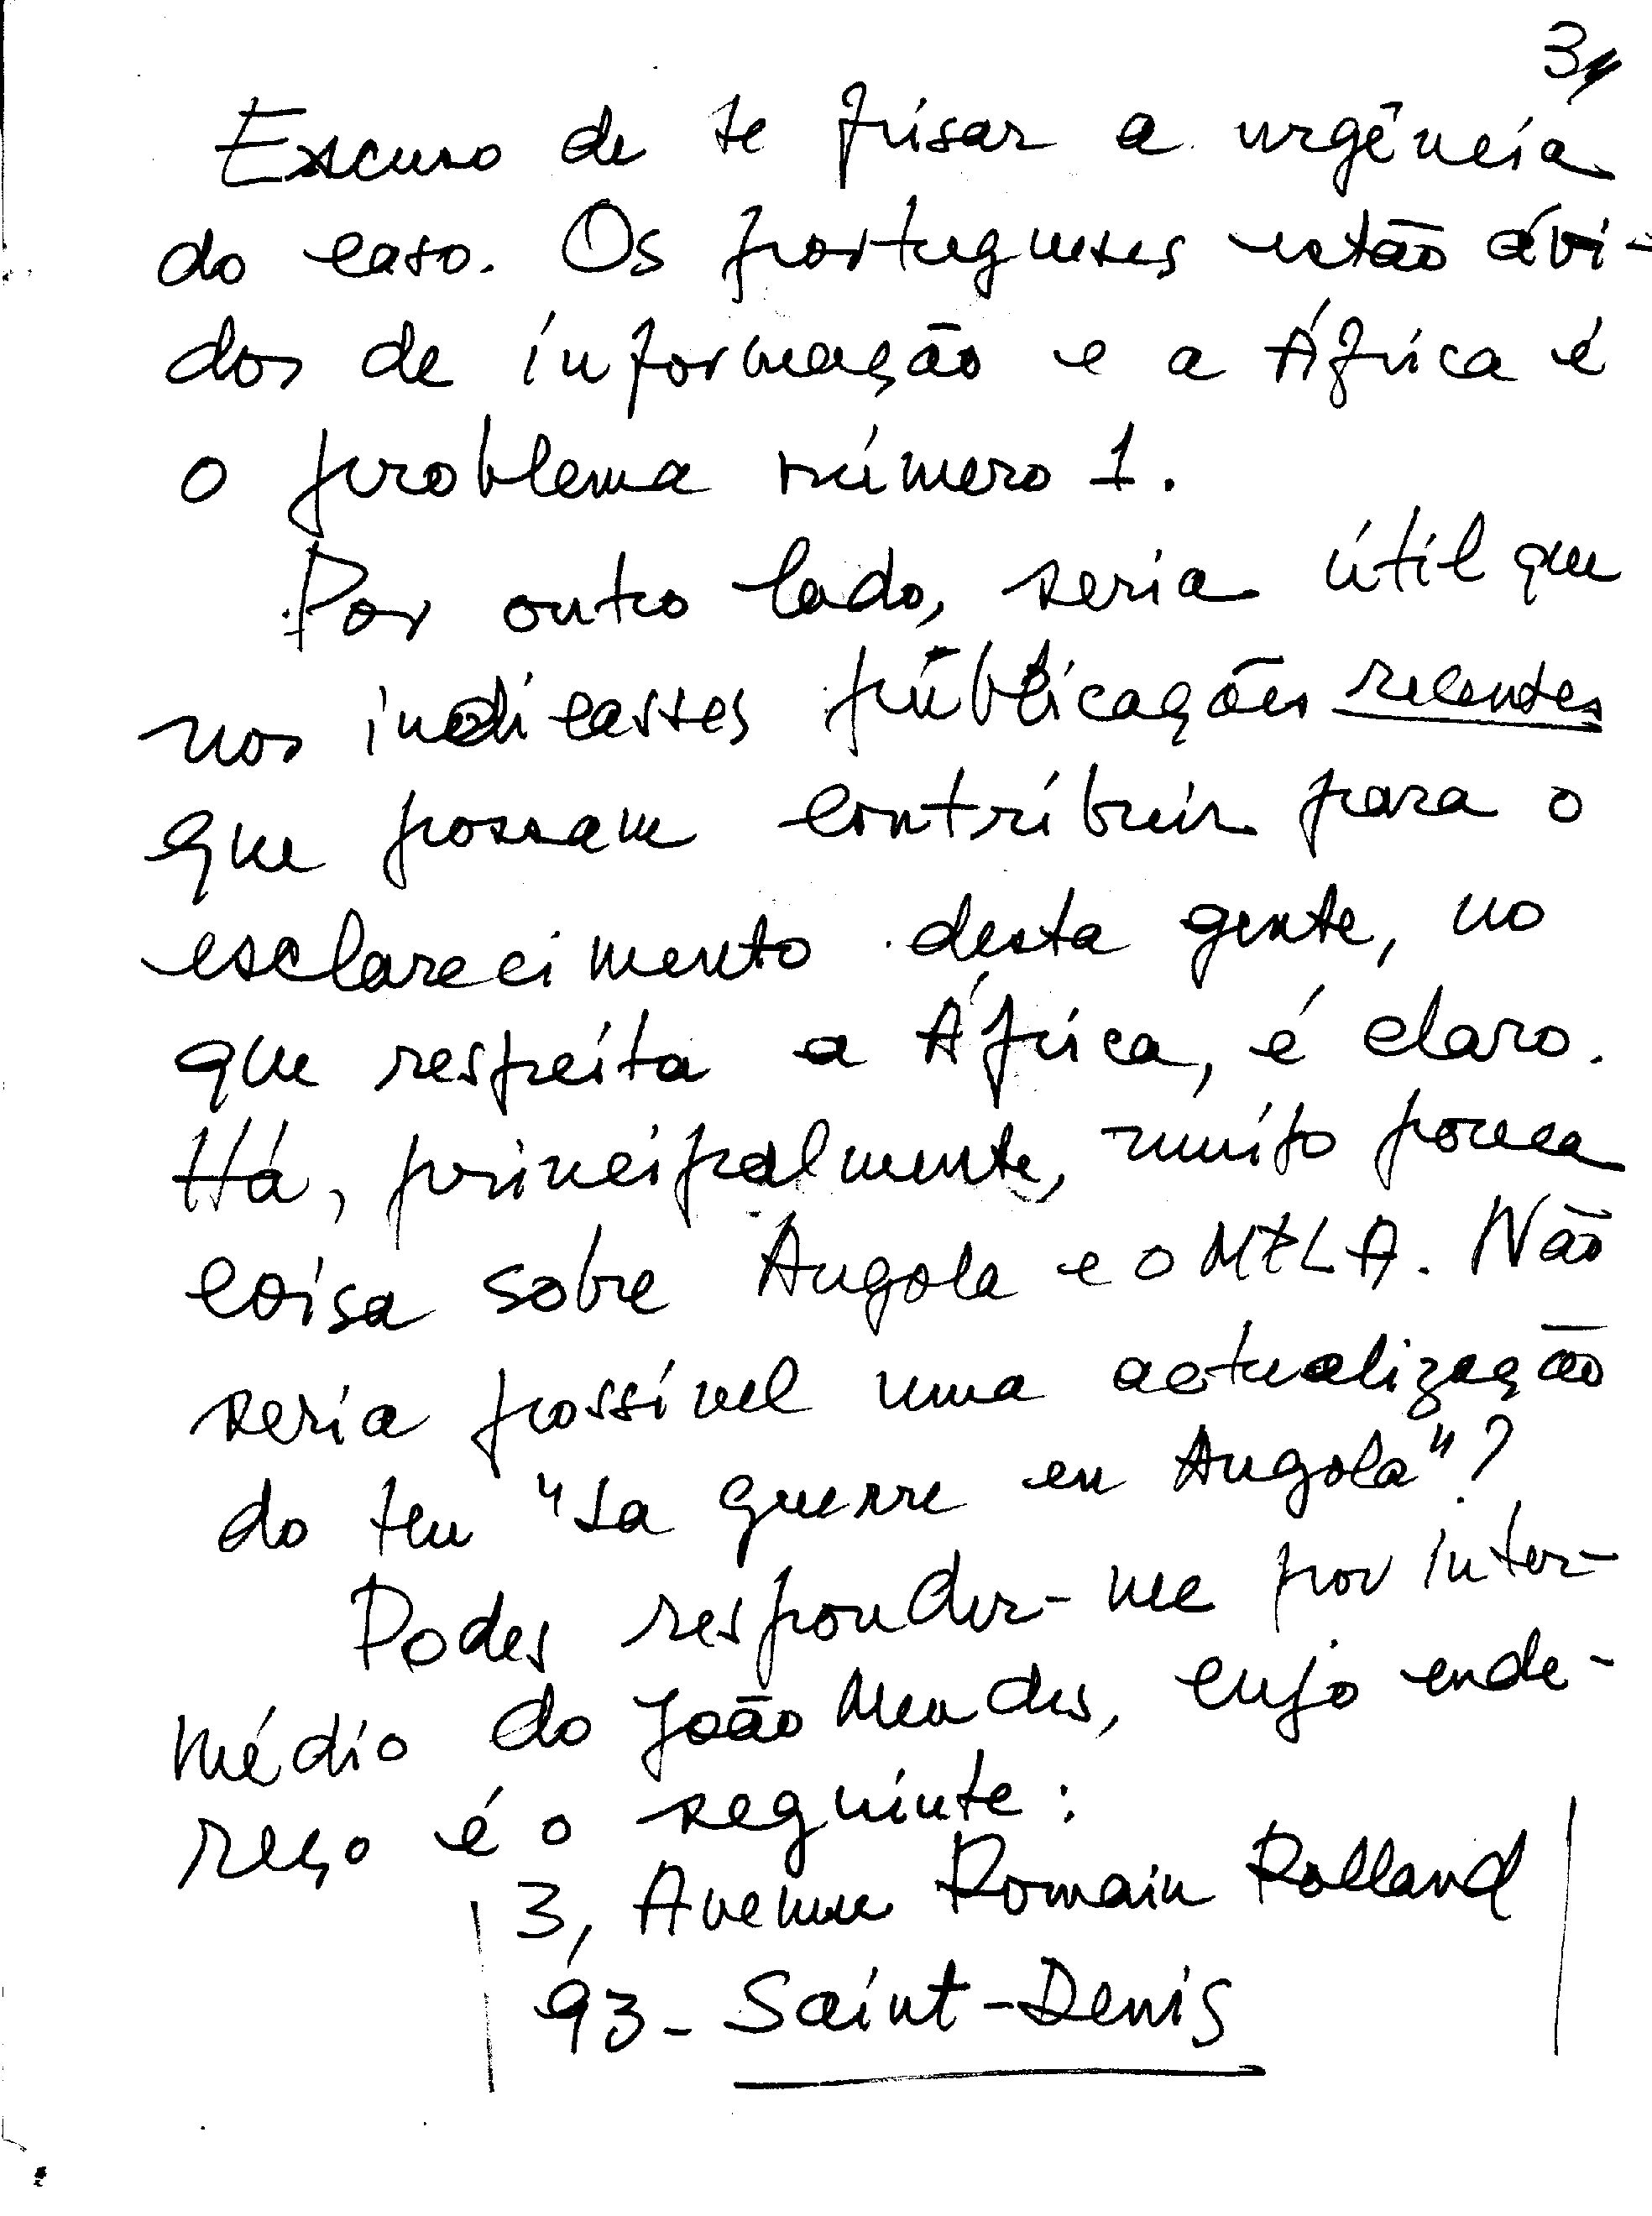 3
Escuso de te frisar a urgência
do caso. Os portugueses estão ávi-
dos de informação e a África é
o problema número 1.
Por outro lado, seria útil que
nos indicasses públicações recentes
que possam contribuir para o
esclarecimento desta gente, no
que respeita a África, é claro.
Há, principalmente, muito pouca
coisa sobre Angola e o MPLA. Não
seria possível uma actualização
do teu "La guerre en Angola"?
Podes responder-me por inter-
médio do João Mendes, cujo ende-
reço é o seguinte:
3, Avenue Romain Rolland
93 - Saint-Denis